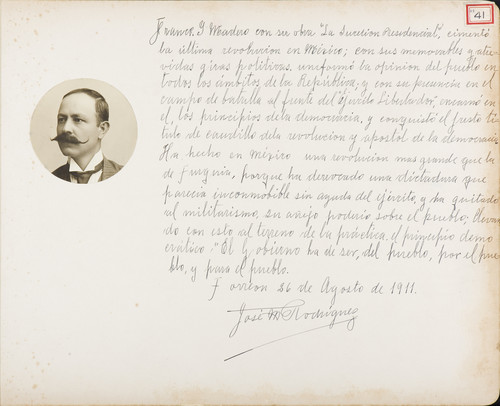 41
Franco. I Madero con su obra "La Sucesion Presidencial", cimentó
la última revolucion en México; con sus memorables y atre-
vidas giras politicas. uniformó la opinion del pueblo en
todos los ámbitos de la República; y con su presencia en el
campo de batalla al frente del "Ejército Libertador", encarnó en
él, los principios de la democracia, y conquistó el justo tí-
tulo de caudillo de la revolucion y apostol de la democracia.
Ha hecho en México una revolucion mas grande que la
de Turquia, porque ha derrocado una dictadura que
parecía inconmobible sin ayuda del ejército, y ha quitado
al militarismo, su añejo poderio sobre el pueblo; lleván-
do con esto al terreno de la práctica, el principio demo-
crático: "El Gobierno ha de ser, del pueblo, por el pue-
blo, y para el pueblo.
Torreon 26 de Agosto de 1911.
José M Rodríguez